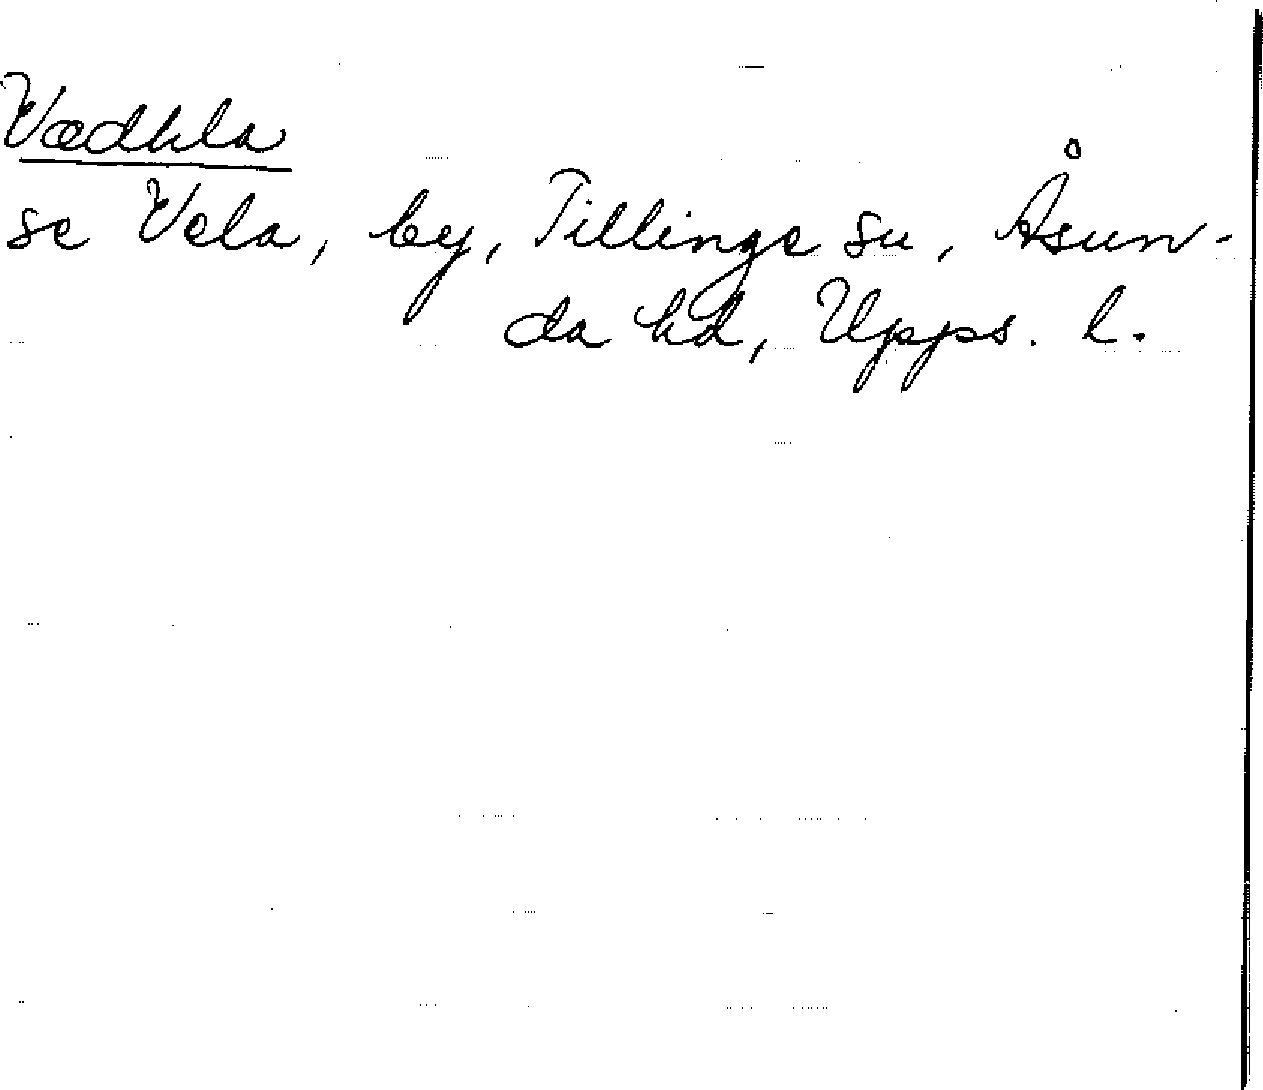 Vædhla
se Vela, by, Tillinge sn, Åsun-
da hd, Upps. l.